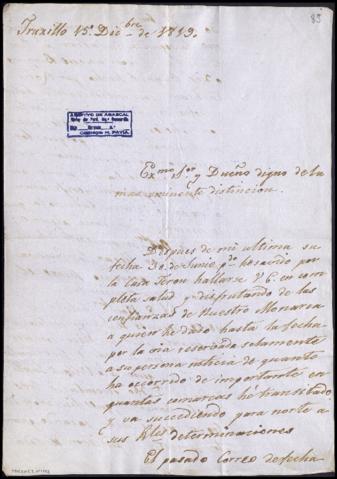 83
Truxillo 15 Dicbre de 1819.
ARCHIVO DE ABASCAL
Exmo Sor y Dueño digno de la
mas eminente distincion.
Despues de mi ultima su
fecha 30 de Junio qe
la Casa hallarse V E. en com
pleta salud y disfrutando de las
confianzas de Nuestro Monarca
a quien he dado hasta la fecha
por la via reservada solamente
a su persona noticia de quanto
ha ocorrido de importante en
quantas comarcas hé transitado
y va sucediendo para norte a
sus Rls determinaciones
El pasado Correo de fecha